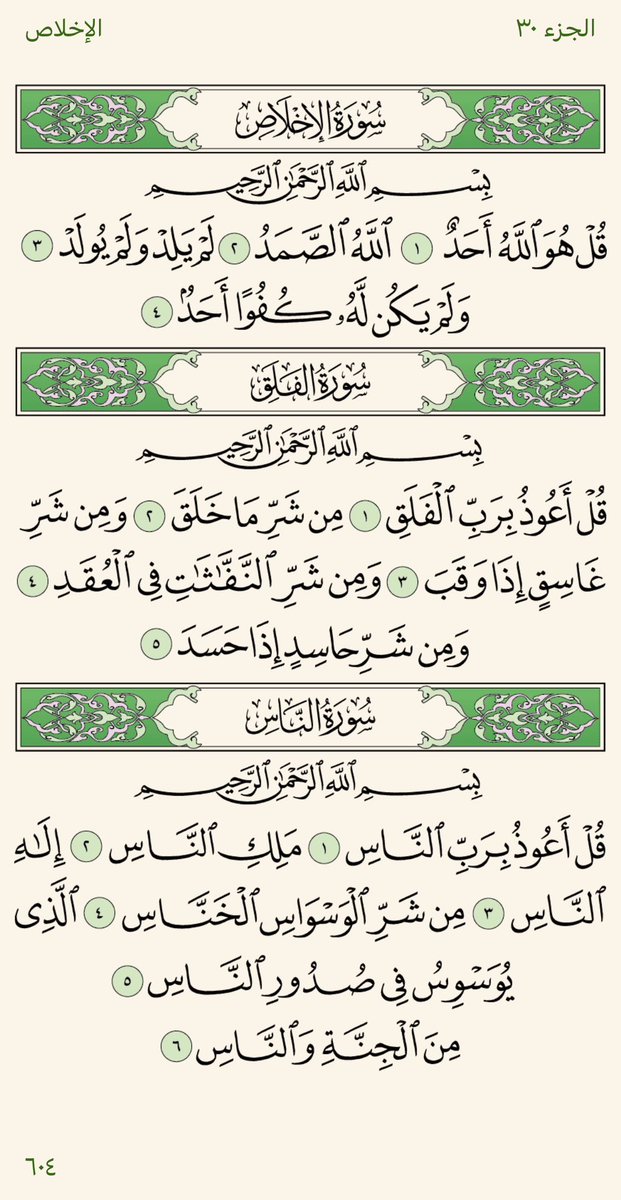 الجزء ٣٠
الإخلاص
سُورَةُ الإِخْلَاصِ
بِسْمِ ٱللَّهِ ٱلرَّحْمَٰنِ ٱلرَّحِيمِ
قُلْ هُوَ ٱللَّهُ أَحَدٌ ١ ٱللَّهُ ٱلصَّمَدُ ٢ لَمْ يَلِدْ وَلَمْ يُولَدْ ٣
وَلَمْ يَكُن لَّهُۥ كُفُوًا أَحَدٌۢ ٤
سُورَةُ الفَلَقِ
بِسْمِ ٱللَّهِ ٱلرَّحْمَٰنِ ٱلرَّحِيمِ
قُلْ أَعُوذُ بِرَبِّ ٱلْفَلَقِ ١ مِن شَرِّ مَا خَلَقَ ٢ وَمِن شَرِّ
غَاسِقٍ إِذَا وَقَبَ ٣ وَمِن شَرِّ ٱلنَّفَّٰثَٰتِ فِى ٱلْعُقَدِ ٤
وَمِن شَرِّ حَاسِدٍ إِذَا حَسَدَ ٥
سُورَةُ النَّاسِ
بِسْمِ ٱللَّهِ ٱلرَّحْمَٰنِ ٱلرَّحِيمِ
قُلْ أَعُوذُ بِرَبِّ ٱلنَّاسِ ١ مَلِكِ ٱلنَّاسِ ٢ إِلَٰهِ
ٱلنَّاسِ ٣ مِن شَرِّ ٱلْوَسْوَاسِ ٱلْخَنَّاسِ ٤ ٱلَّذِى
يُوَسْوِسُ فِى صُدُورِ ٱلنَّاسِ ٥
مِنَ ٱلْجِنَّةِ وَٱلنَّاسِ ٦
٦٠٤